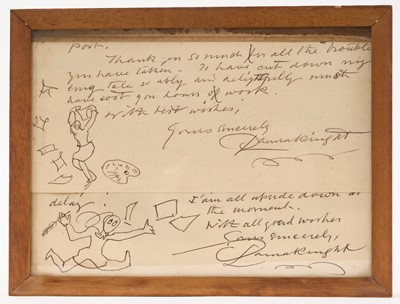 post.
Thank you so much for all the "trouble
you have taken. To have cut down my
long tale so ably and delightfully must
have cost you hours of work.
with best wishes;
Yours sincerely
Laura Knight
delay!
I'am all upside down at
the moment.
With all good wishes
Yours sincerely,
Laura Knight